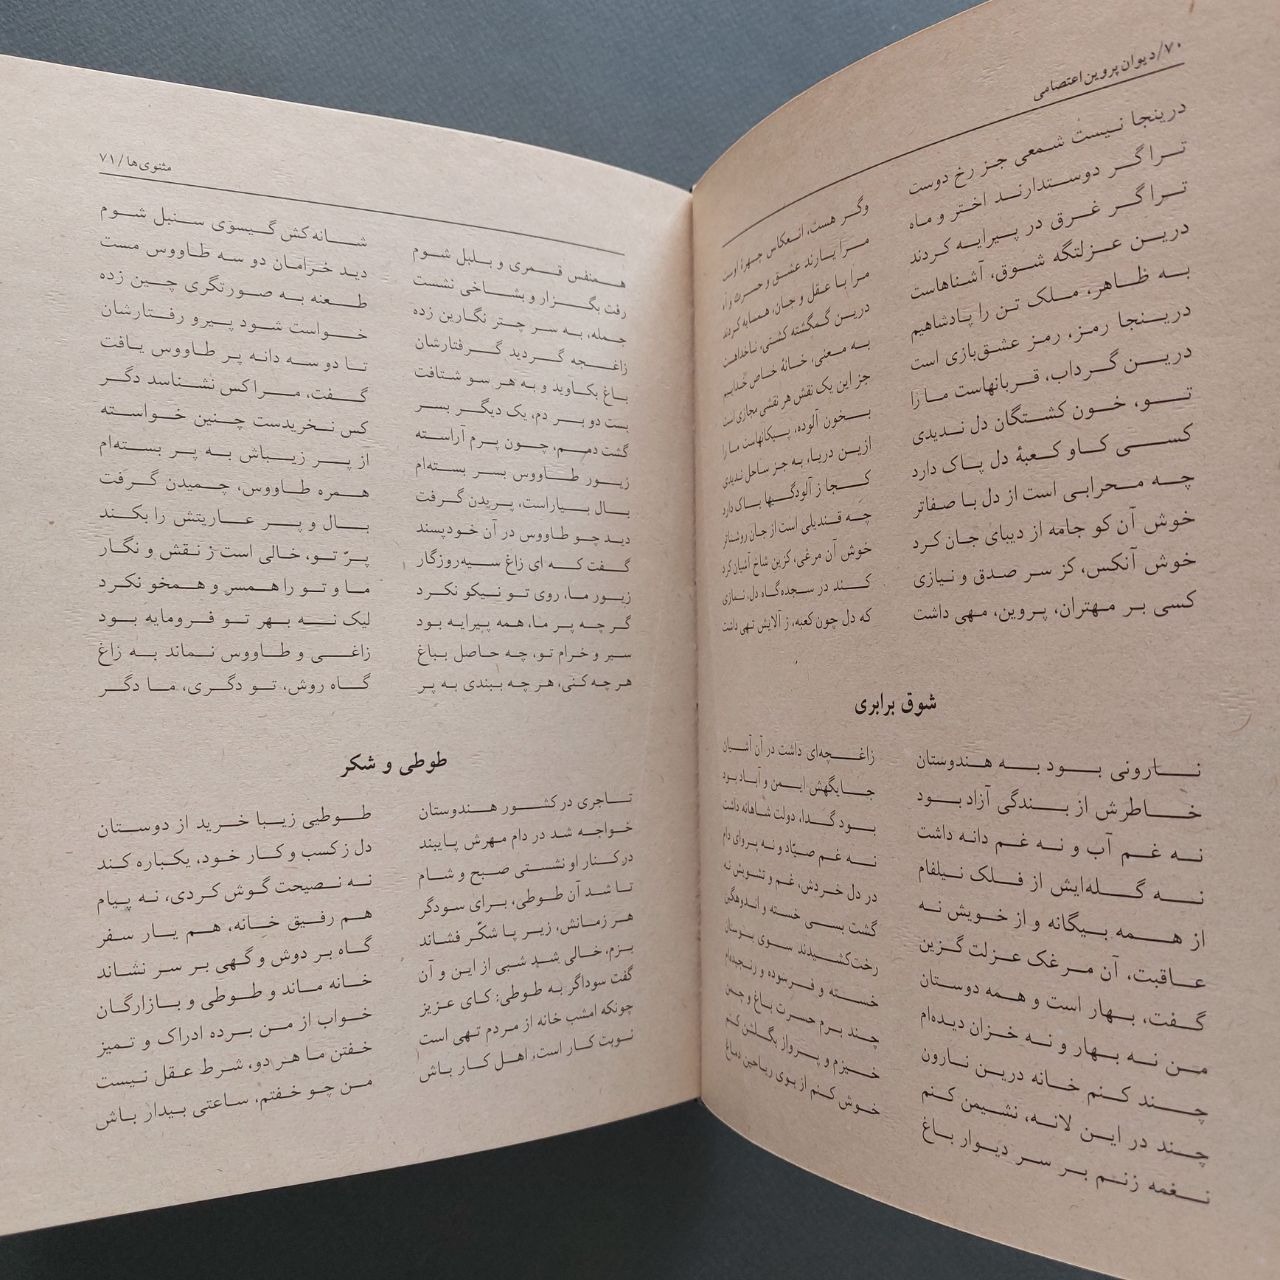 ۷۰/دیوان پروین اعتصامی
درینجا نیست شمعی جز رخ دوست
وگر هست، انعکاس چهرهٔ اوست
ترا گر دوستدارند اختر و ماه
مرا یارند عشق و حسرت و آه
ترا گر غرق در پیرایه کردند
مرا با عقل و جان، همسایه کردند
درین عزلتگه شوق، آشناهاست
درین گمگشته کشتی، ناخداهاست
به ظاهر، ملک تن را پادشاهیم
به معنی، خانهٔ خاص خُداییم
درینجا رمز، رمز عشق‌بازی است
جز این یک نقش هر نقشی مجازی است
درین گرداب، قربانهاست ما را
بخون آلوده، پیکانهاست ما را
تو، خون کشتگان دل ندیدی
ازین دریا، به جز ساحل ندیدی
کسی کاو کعبهٔ دل پاک دارد
کجا ز آلودگیها باک دارد
چه محرابی است از دل با صفاتر
چه قندیلی است از جان روشناتر
خوش آن کو جامه از دیبای جان کرد
خوش آن مرغی، کزین شاخ آشیان کرد
خوش آنکس، کز سر صدق و نیازی
کند در سجده‌گاه دل، نمازی
کسی بر مهتران، پروین، مهی داشت
که دل چون کعبه، ز آلایش تهی داشت
شوق برابری
نارونی بود به هندوستان
زاغچه‌ای داشت در آن آشیان
خاطرش از بندگی آزاد بود
جایگهش ایمن و آباد بود
نه غم آب و نه غم دانه داشت
بود گدا، دولت شاهانه داشت
نه گله‌ایش از فلک نیلفام
نه غم صیّاد و نه پروای دام
از همه بیگانه و از خویش نه
در دل خردش، غم و تشویش نه
عاقبت، آن مرغک عزلت گزین
گشت بسی خسته و اندوهگین
گفت، بهار است و همه دوستان
رخت کشیدند سوی بوستان
من نه بهار و نه خزان دیده‌ام
خسته و فرسوده و رنجیده‌ام
چند کنم خانه درین نارون
چند برم حسرت باغ و چمن
چند در این لانه، نشیمن کنم
خیزم و پرواز بگلشن کنم
نغمه زنم بر سر دیوار باغ
خوش کنم از بوی ریاحین دماغ
مثنوی‌ها/۷۱
همنفس قمری و بلبل شوم
شانه‌کش گیسوی سنبل شوم
رفت بگلزار و بشاخی نشست
دید خرامان دو سه طاووس مست
جمله، به سر چتر نگارین زده
طعنه به صورتگری چین زده
زاغچه گردید گرفتارشان
خواست شود پیرو رفتارشان
باغ بکاوید و به هر سو شتافت
تا دو سه دانه پر طاووس یافت
بست دو بر دم، یک دیگر بسر
گفت، مرا کس نشناسد دگر
گشت دمم، چون پرم آراسته
کس نخریدست چنین خواسته
زیور طاووس بسر بسته‌ام
از پر زیباش به پر بسته‌ام
بال بیاراست، پریدن گرفت
همره طاووس، چمیدن گرفت
دید چو طاووس در آن خودپسند
بال و پر عاریتش را بکند
گفت که ای زاغ سیه‌روزگار
پرّ تو، خالی است ز نقش و نگار
زیور ما، روی تو نیکو نکرد
ما و تو را همسر و همخو نکرد
گر چه پر ما، همه پیرایه بود
لیک نه بهر تو فرومایه بود
سیر و خرام تو، چه حاصل بباغ
زاغی و طاووس نماند به زاغ
هر چه کنی، هر چه ببندی به پر
گاه روش، تو دگری، ما دگر
طوطی و شکر
تاجری در کشور هندوستان
طوطیی زیبا خرید از دوستان
خواجه شد در دام مهرش پایبند
دل ز کسب و کار خود، یکباره کند
در کنار او نشستی صبح و شام
نه نصیحت گوش کردی، نه پیام
تا شد آن طوطی، برای سودگر
هم رفیق خانه، هم یار سفر
هر زمانش، زیر پا شکّر فشاند
گاه بر دوش و گهی بر سر نشاند
بزم، خالی شد شبی از این و آن
خانه ماند و طوطی و بازارگان
گفت سوداگر به طوطی: کای عزیز
خواب از من برده ادراک و تمیز
چونکه امشب خانه از مردم تهی است
خفتن ما هر دو، شرط عقل نیست
نوبت کار است، اهل کار باش
من چو خفتم، ساعتی بیدار باش